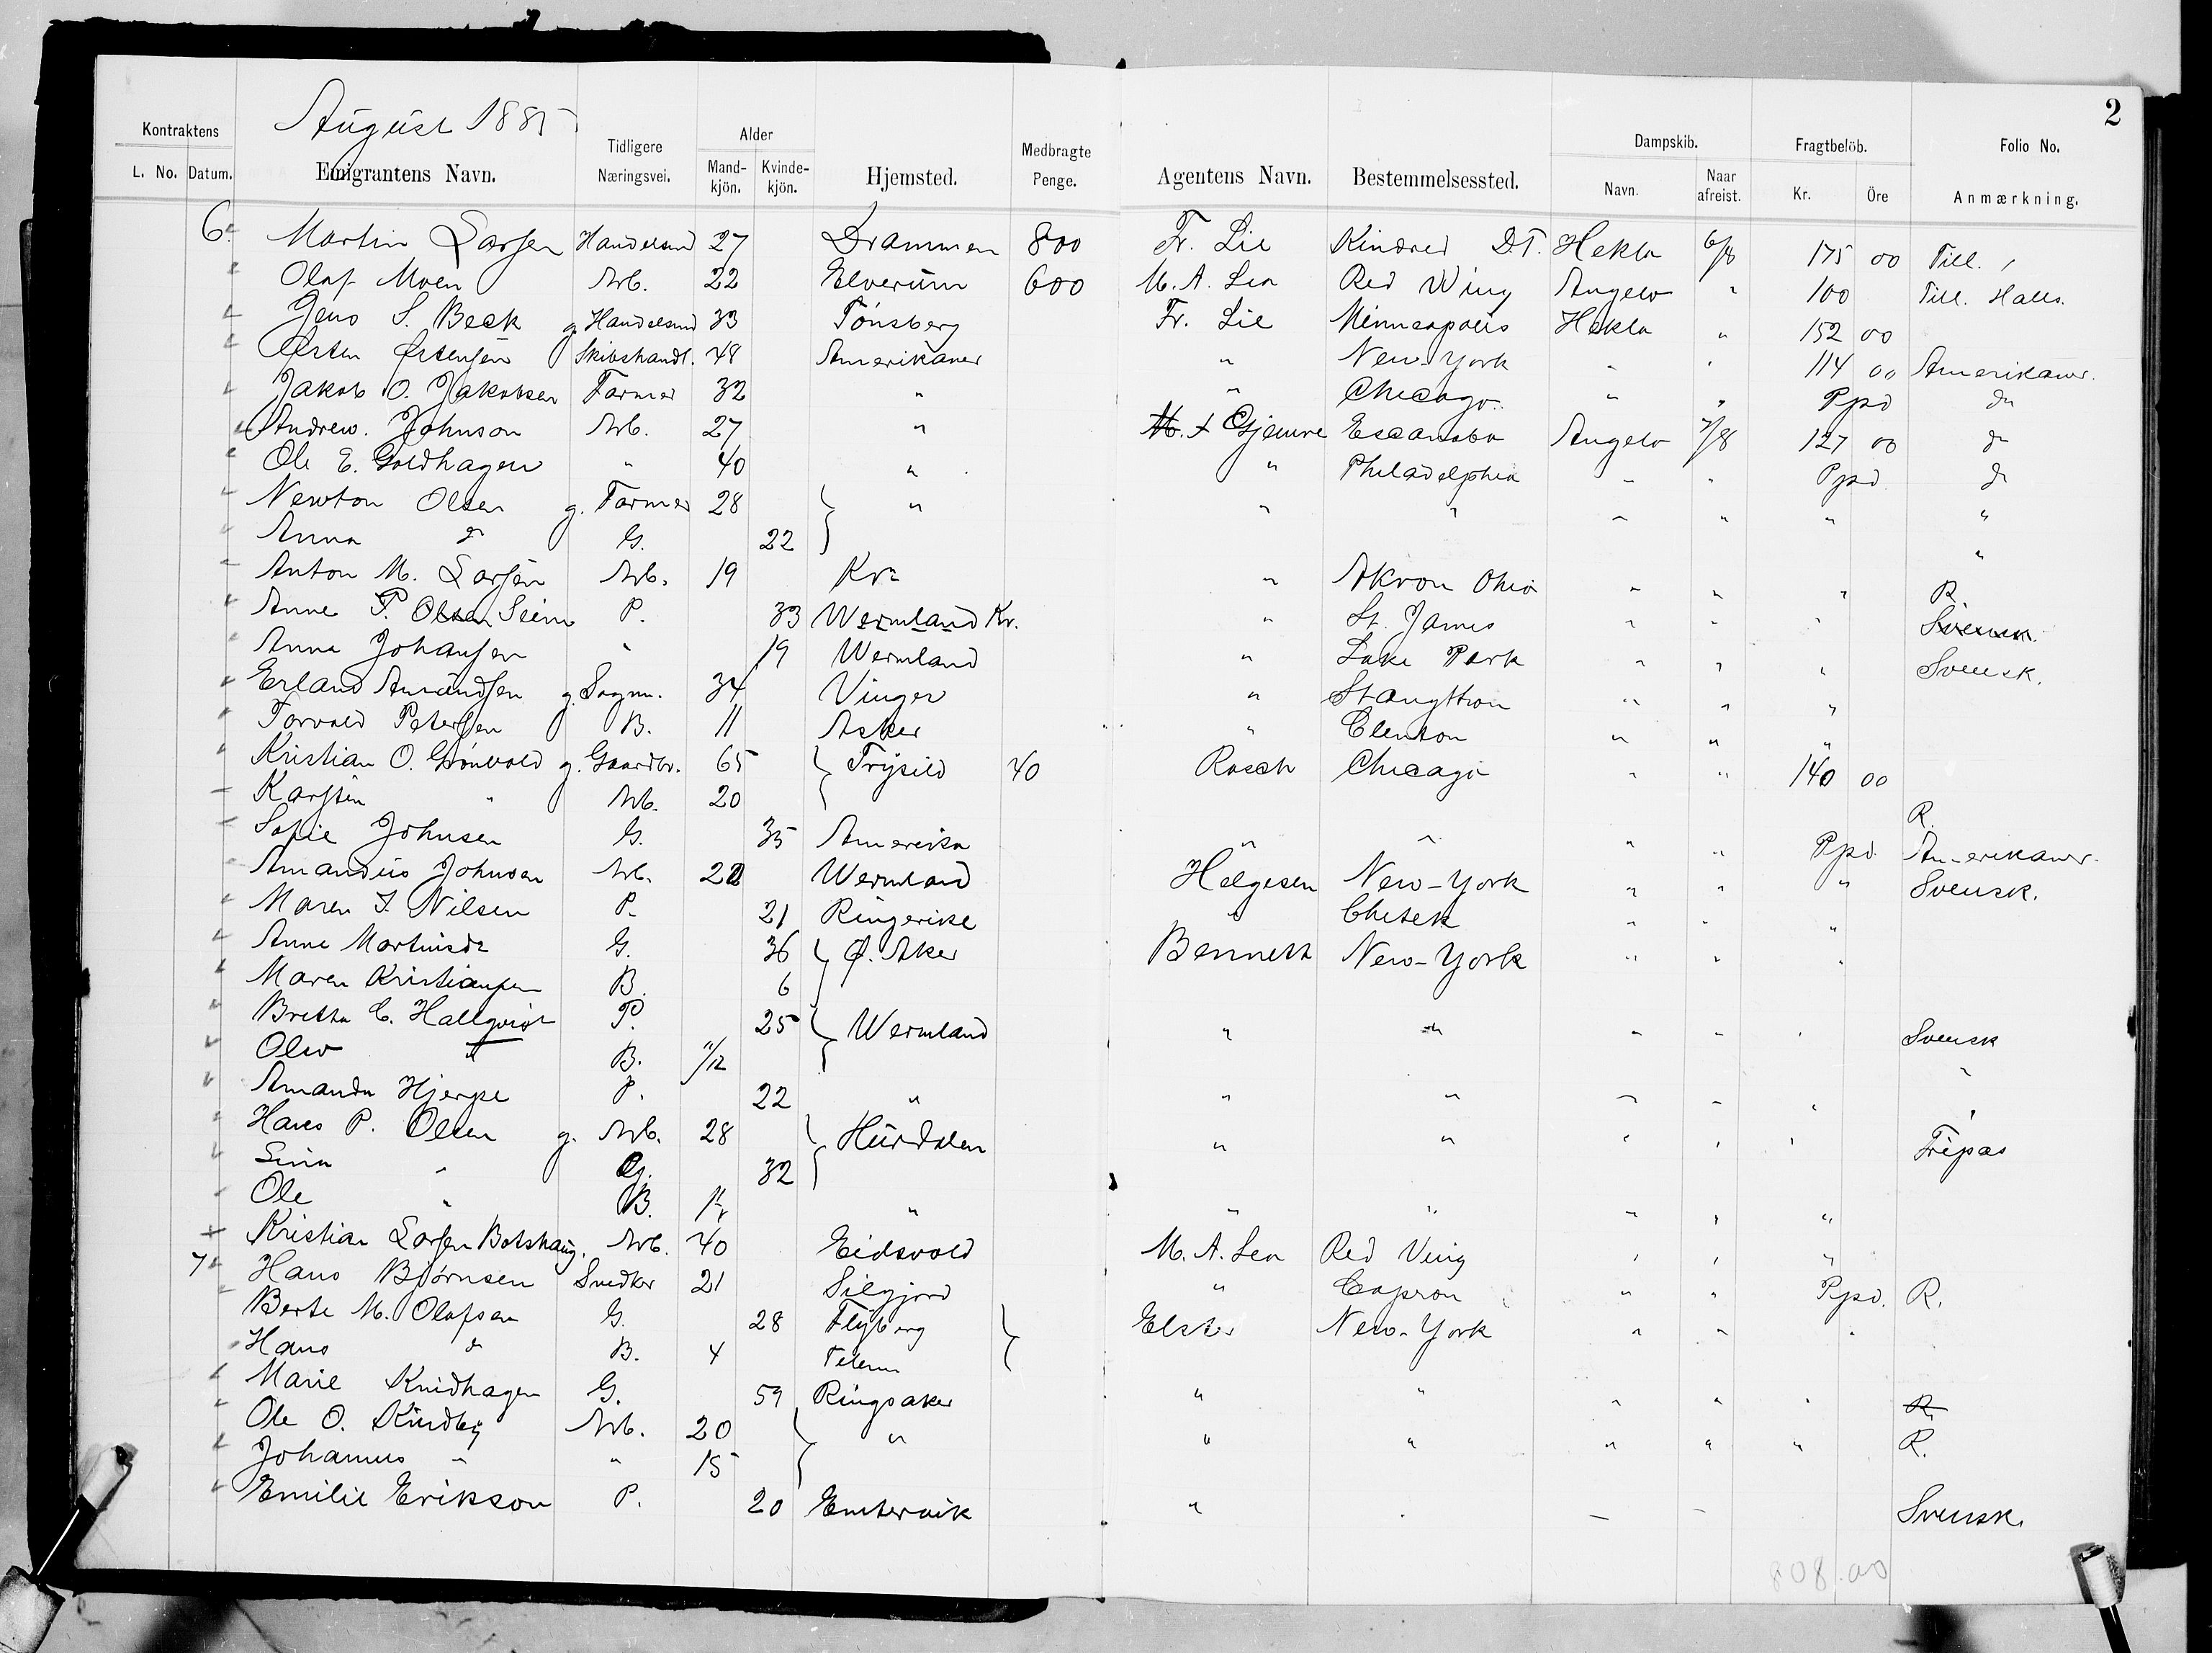 2
August 1885
Kontraktens L. No. Datum. Emigrantens Navn. Tidligere Næringsvei. Alder Mand-kjön. Kvinde-kjön. Hjemsted. Medbragte Penge. Agentens Navn. Bestemmelsessted. Dampskib. Navn. Naar afreist. Fragtbelöb. Kr. Öre Folio No. Anmærkning.
6. Martin Larsen Handelsmd 27 Drammen 800 Fr. Lie Kindred D.T. Hekla 6/8 175 00 Till.
Olaf Moen Arb. 22 Elverum 600 M. A. Lea Red Wing Angelo " 100 Till. Halls.
Jens S. Beck g. Handelsmd 33 Tönsberg Fr. Lie Minneapolis Hekla " 152 00
Østen Østensen Skibshandl. 48 Amerikaner " New-York " " 114 00 Amerikaner.
Jakob O. Jakobsen Farmer 32 " " Chicago " " Ppd do
Andrew. Johnson Arb. 27 " Gjemre Escanaba Angelo 7/8 127 00 do
Ole E. Goldhagen " 40 " " Philadelphia " " Ppd do
Newton Olsen g. Farmer 28 " " " " " " "
Anna do G. 22 "
Anton M. Larsen Arb. 19 Kra " Akron Ohio " " " R.
Anne P. Olsen Seim P. 33 Wermland Kr. " St. James " " " Svensk.
Anna Johansen " 19 Wermland " Lake Park " " " Svensk.
Erland Amundsen g. Sagm. 34 Vinger " Staugttron " " "
Torvald Petersen B. 11 Asker " Clenton " " "
Kristian O. Grönvold g. Gaardbr. 65 Trysild 40 Rosch Chicago " " 140 00
Karsten " Arb. 20 R.
Sofie Johnsen G. 35 Amerika " " " " Ppd. Amerikaner.
Amandus Johnsen Arb. 22 Wermland Helgesen New-York " " " Svensk.
Maren I. Nilsen P. 21 Ringerike " Chetek " " "
Anne Martinsdr G. 36 Ø. Aker Bennett New-York " " "
Maren Kristiansen B. 6
Bretta C. Hallqvist P. 25 Wermland " " " " " Svensk
Olov " B. 11/12 "
Amanda Hjerpe P. 22 " " " " " " "
Hans P. Olsen g. Arb. 28 Hurdalen " " " " " Fripas
Sina " G. 32
Ole " B. " " " " " "
Kristian Larsen Botshaug. Arb. 40 Eidsvold M. A. Lea Red Ving " " "
7 Hans Björnsen Snedker 21 Silgjord " Capron " " Ppd. R.
Berte M. Olafsen G. 28 Flyberg Elster New-York " " "
Hans do B. 4
Marie Knidhagen G. 59 Ringsaker " " " " " R.
Ole O. Kindby Arb. 20 " " " " " " R.
Johannes " " 15
Emilie Erikson P. 20 Emtervik " " " " Svensk.
808.00